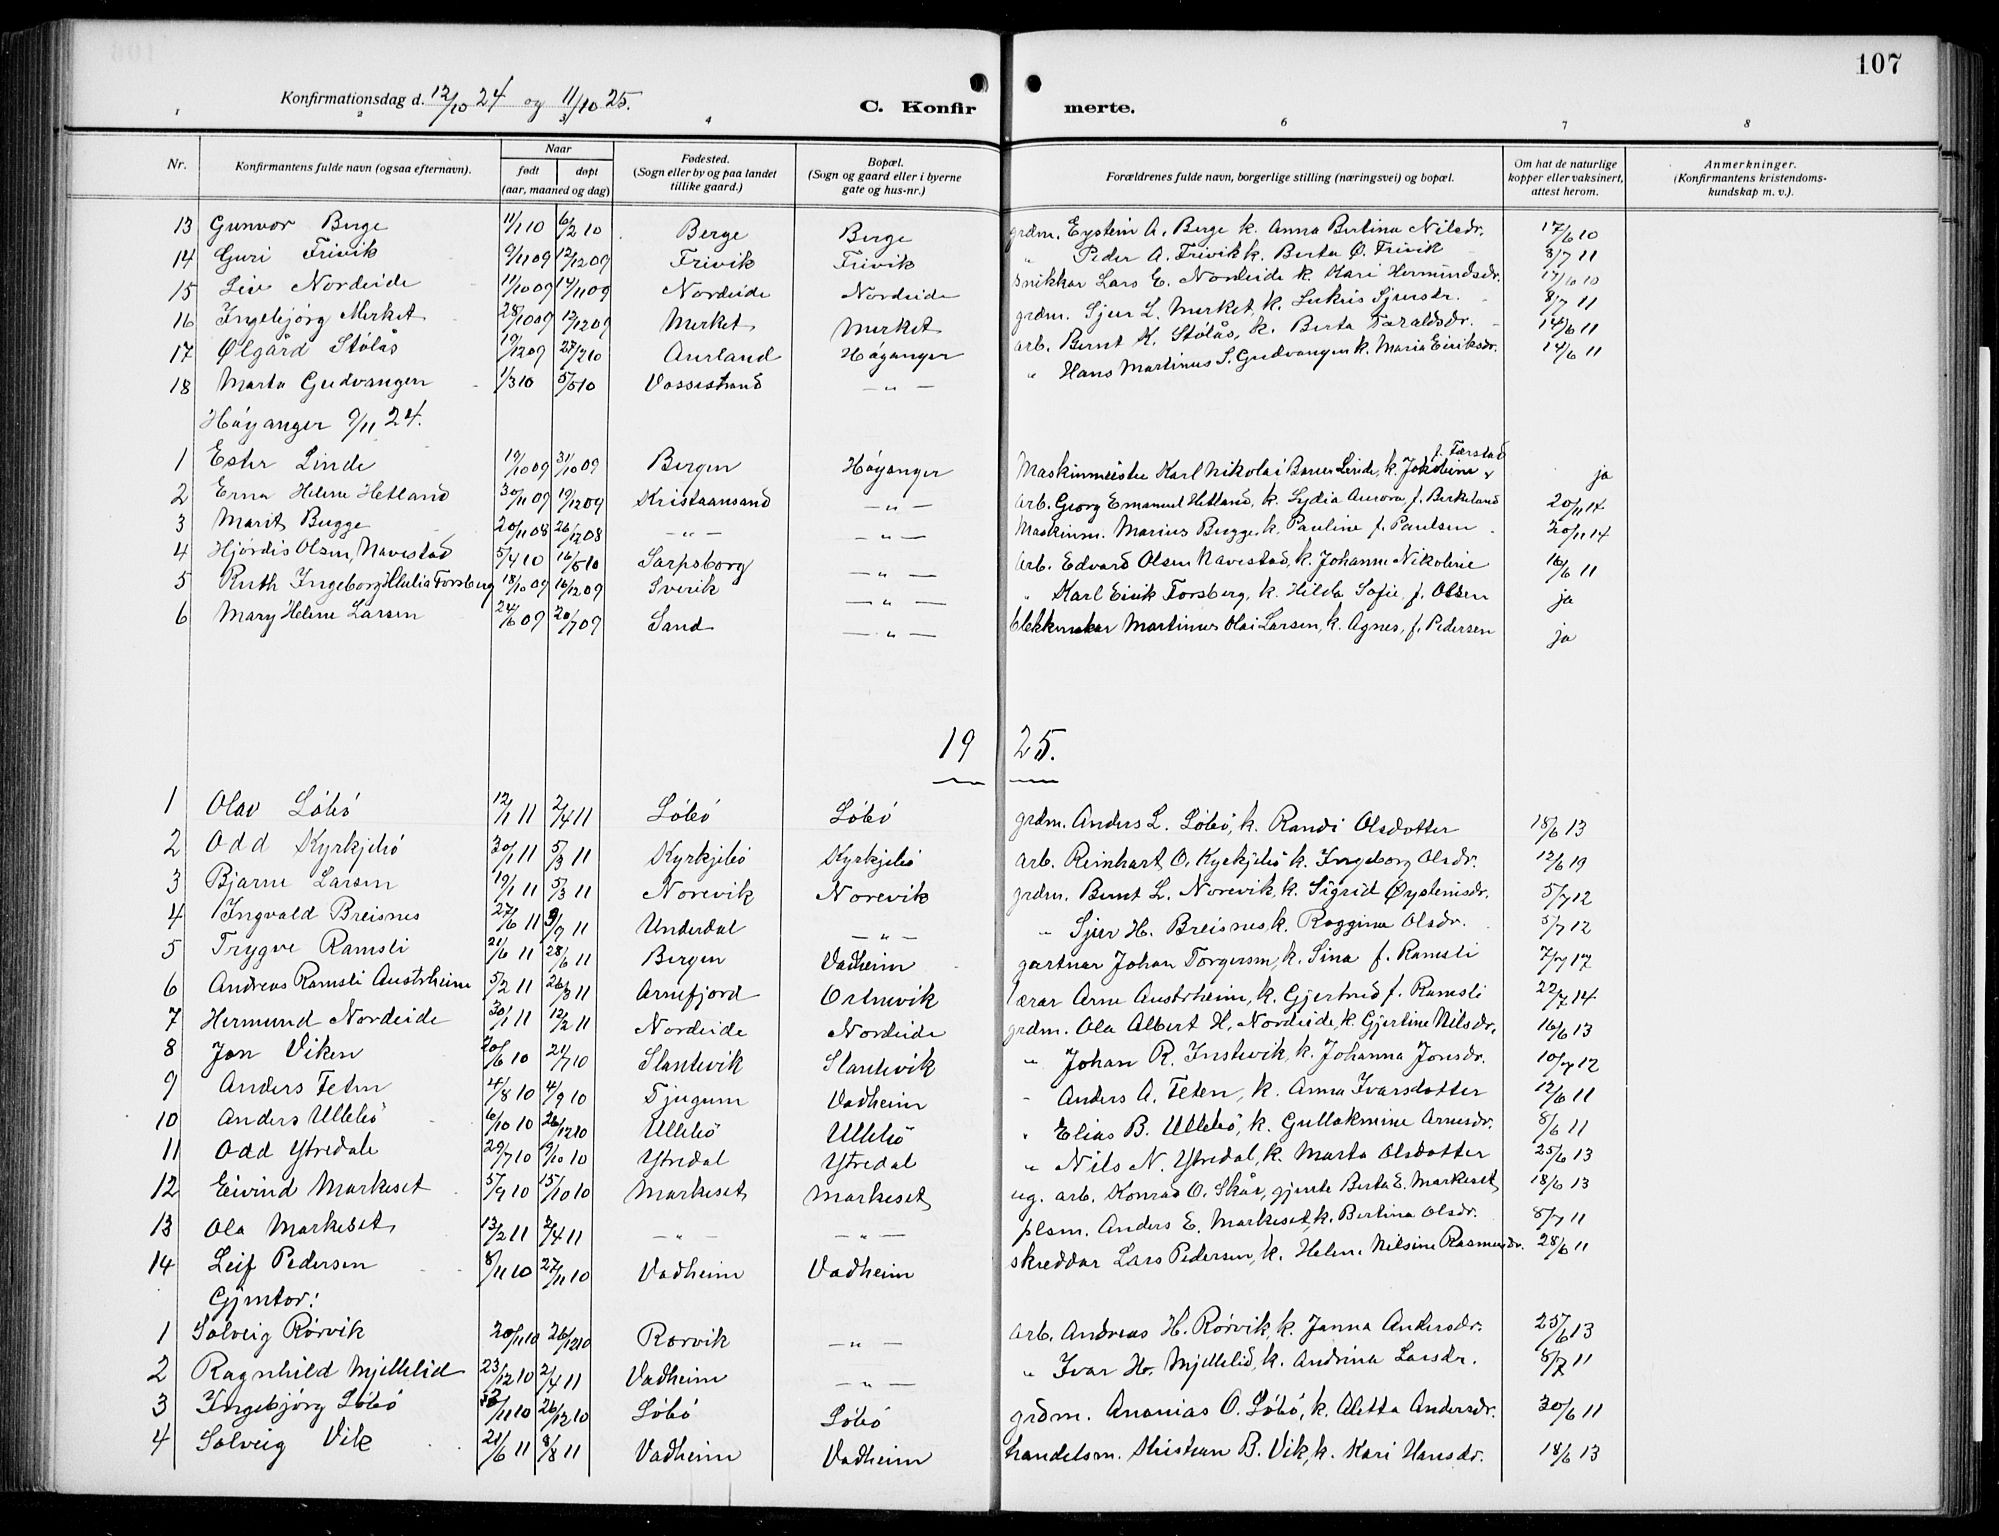 107
Konfirmationsdag d. 12/10 24 og 11/10 25.
C. Konfirmerte.
1 2 3 4 6 7 8
Nr. Konfirmantens fulde navn (ogsaa efternavn). Naar født døpt (aar, maaned og dag) Fødested. (Sogn eller by og paa landet tillike gaard.) Bopæl. (Sogn og gaard eller i byerne gate og hus-nr.) Forældrenes fulde navn, borgerlige stilling (næringsvei) og bopæl. Om hat de naturlige kopper eller vaksinert, attest herom. Anmerkninger. (Konfirmantens kristendomskundskap m. v.).
13 Gunvor Berge 11/1 10 6/2 10 Berge Berge grdm. Eystein A. Berge k. Anna Bertina Nilsdr. 17/6 10
14 Guri Frivik 9/11 09 12/12 09 Frivik Frivik " Peder A. Frivik k. Berta Ø. Frivik 8/7 11
15 Liv Nordeide 11/10 09 14/11 09 Nordeide Nordeide snikkar Lars E. Nordeide k. Kari Hermundsdr. 17/6 10
16 Ingebjørg Merket 28/10 09 12/12 09 Merket Merket grdm. Sjur L. Merket, k. Lukris Sjursdr. 8/7 11
17 Ølgård Stølås 19/12 09 27/2 10 Aurland Høyanger arb. Bernt K. Stølås, k. Berta Taraldsdr. 14/6 11
18 Marta Gudvangen 1/3 10 5/5 10 Vossestrand — " — " Hans Martinus S. Gudvangen k. Maria Eiriksdr. 14/6 11
Høyanger 9/11 24.
1 Ester Linde 19/10 09 31/10 09 Bergen Høyanger Maskinmeister Karl Nikolai Linde, k. Jakobine f. Færstad ja
2 Erna Helene Hetland 30/11 09 19/12 09 Kristiansand — " — arb. Georg Emanuel Hetland, k. Lydia Aurora f. Birkeland 20/11 14
3 Marit Bugge 20/11 08 26/12 08 — " — — " — Maskinm. Marius Bugge, k. Pauline f. Paulsen 20/11 14
4 Hjørdis Olsen, Navestad 5/4 10 16/5 10 Sarpsborg — " — arb. Edvard Olsen Navestad, k. Johanne Nikoline 16/6 11
5 Ruth Ingeborg Forsberg 18/10 09 16/12 09 Sverik — " — " Karl Eirik Forsberg, k. Hilda Sofie, f. Olsen ja
6 Mary Helene Larsen 24/6 09 20/7 09 Sand — " — blekkmakar Martinus Olai Larsen, k. Agnes, f. Pedersen ja
1925.
1 Olav Løbø 12/1 11 2/4 11 Løbø Løbø grdm. Anders L. Løbø, k. Randi Olsdotter 18/6 13
2 Odd Kyrkjebø 30/1 11 5/3 11 Kyrkjebø Kyrkjebø arb. Reinhart O. Kyrkjebø k. Ingeborg Olsdr. 12/6 19
3 Bjarne Larsen 19/1 11 5/3 11 Norevik Norevik grdm. Bernt L. Norevik, k. Sigrid Øysteinsdr. 5/7 12
4 Ingvald Breisnes 27/6 11 9/7 11 Underdal — " — " Sjur H. Breisnes k. Raggina Olsdr. 5/7 12
5 Trygve Ramsli 21/6 11 28/6 11 Bergen Vadheim gartnar Johan Torgersen, k. Sina f. Ramsli 7/7 17
6 Andreas Ramsli Austrheim 5/2 11 26/3 11 Arnefjord Ortnevik lærar Arne Austrheim, k. Gjertrud f. Ramsli 22/7 14
7 Hermund Nordeide 30/1 11 12/2 11 Nordeide Nordeide grdm. Ola Albert H. Nordeide, k. Gjertine Nilsdr. 16/6 13
8 Jon Viken 20/6 10 21/7 10 Slantevik Slantevik " Johan R. Instevik, k. Johanna Jonsdr. 10/7 12
9 Anders Feten 4/8 10 4/9 10 Tjugum Vadheim " Anders A. Feten, k. Anna Ivarsdotter 12/6 11
10 Anders Ullebø 6/10 10 26/12 10 Ullebø Ullebø " Elias B. Ullebø, k. Gullakmine Arnesdr. 8/6 11
11 Odd Ytredale 29/7 10 9/10 10 Ytredal Ytredal " Nils N. Ytredal, k. Marta Olsdotter 25/6 13
12 Eivind Markeset 5/9 10 15/10 10 Markeset Markeset ug. arb. Konrad O. Skår, gjente Berta E. Markeset 18/6 13
13 Ola Markeset 13/2 11 2/4 11 — " — — " — plsm. Anders E. Markeset k. Bertina Olsdr. 8/7 11
14 Leif Pedersen 8/11 10 27/11 10 Vadheim Vadheim skreddar Lars Pedersen, k. Helene Nilsine Rasmusdr. 28/6 11
Gjentor:
1 Solveig Rørvik 20/11 10 26/12 10 Rørvik — " — arb. Andreas H. Rørvik, k. Janna Andersdr. 25/6 13
2 Ragnhild Mjellelid 23/12 10 2/4 11 Vadheim — " — " Ivar H. Mjellelid, k. Andrina Larsdr. 8/7 11
3 Ingebjørg Løbø /11 10 26/12 10 Løbø Løbø grdm. Ananias O. Løbø, k. Aletta Andersdr. 30/6 11
4 Solveig Vik 21/6 11 8/8 11 Vadheim Vadheim handelsm. Kristian B. Vik, k. Kari Hansdr. 18/6 13